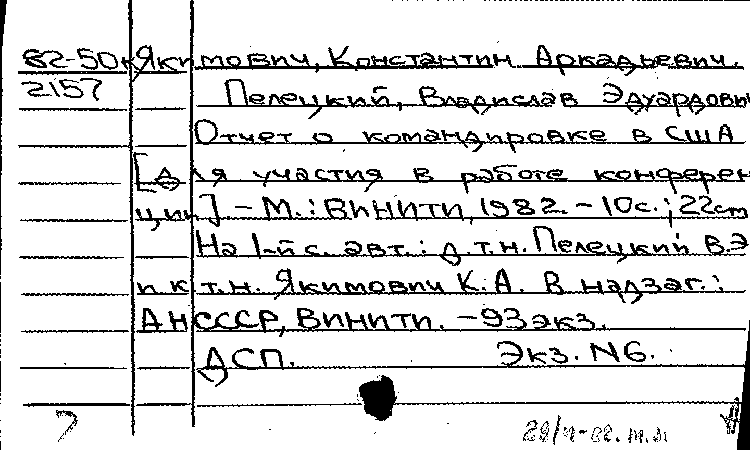 82-50к Якимович, Константин Аркадьевич.
2157 Пелецкий, Владислав Эдуардови
Отчет о командировке в США
[для участия в работе конферен
ции] – М.: ВИНИТИ, 1982. – 10с.; 22см
На 1-й с. авт.: д.т.н. Пелецкий В.Э
и к.т.н. Якимович К.А. В надзаг.:
АН СССР, ВИНИТИ. – 93 экз.
ДСП. Экз. N6.